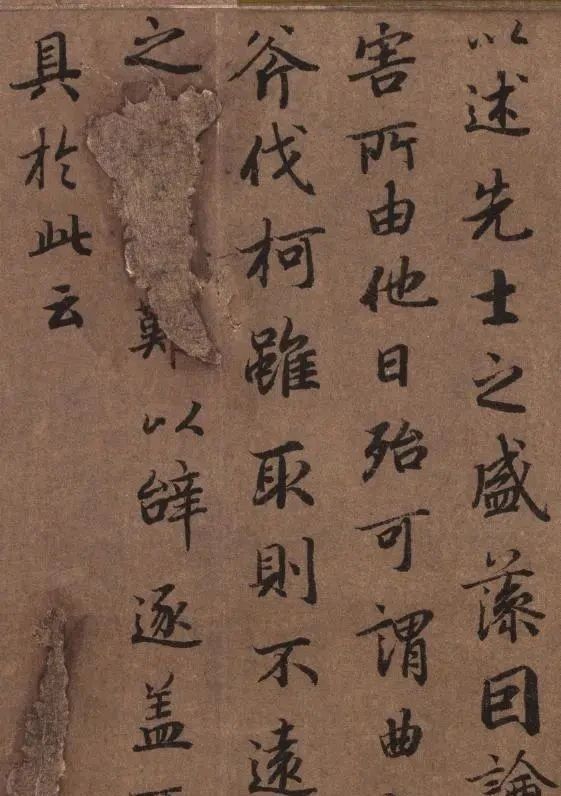 以述先士之盛藻因論
害所由他日殆可謂曲
斧伐柯雖取則不遠
之難以辭逐盖
具於此云